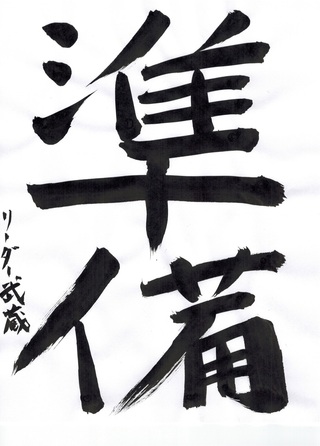 準備
リーダー武蔵